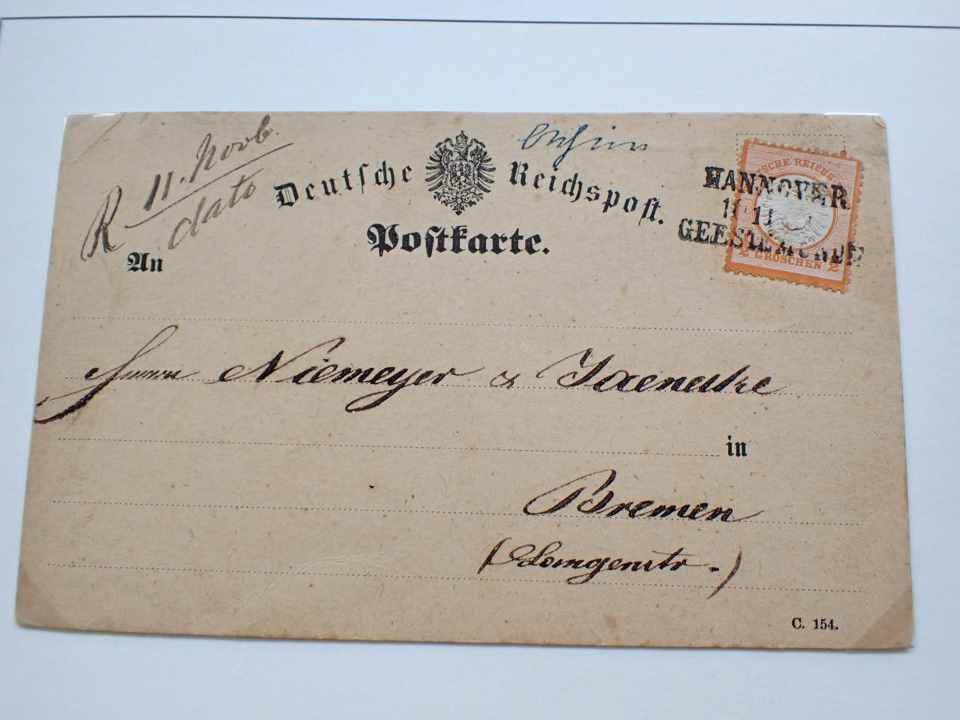 R 11. Novb.
dato
Deutsche Reichspost.
Postkarte.
HANNOVER
11
GEESTEMÜNDE
SCHE REICHS
2 GROSCHEN 2
An
Herren Niemeyer & Jaenecke
in
Bremen
(Langenstr.)
C. 154.